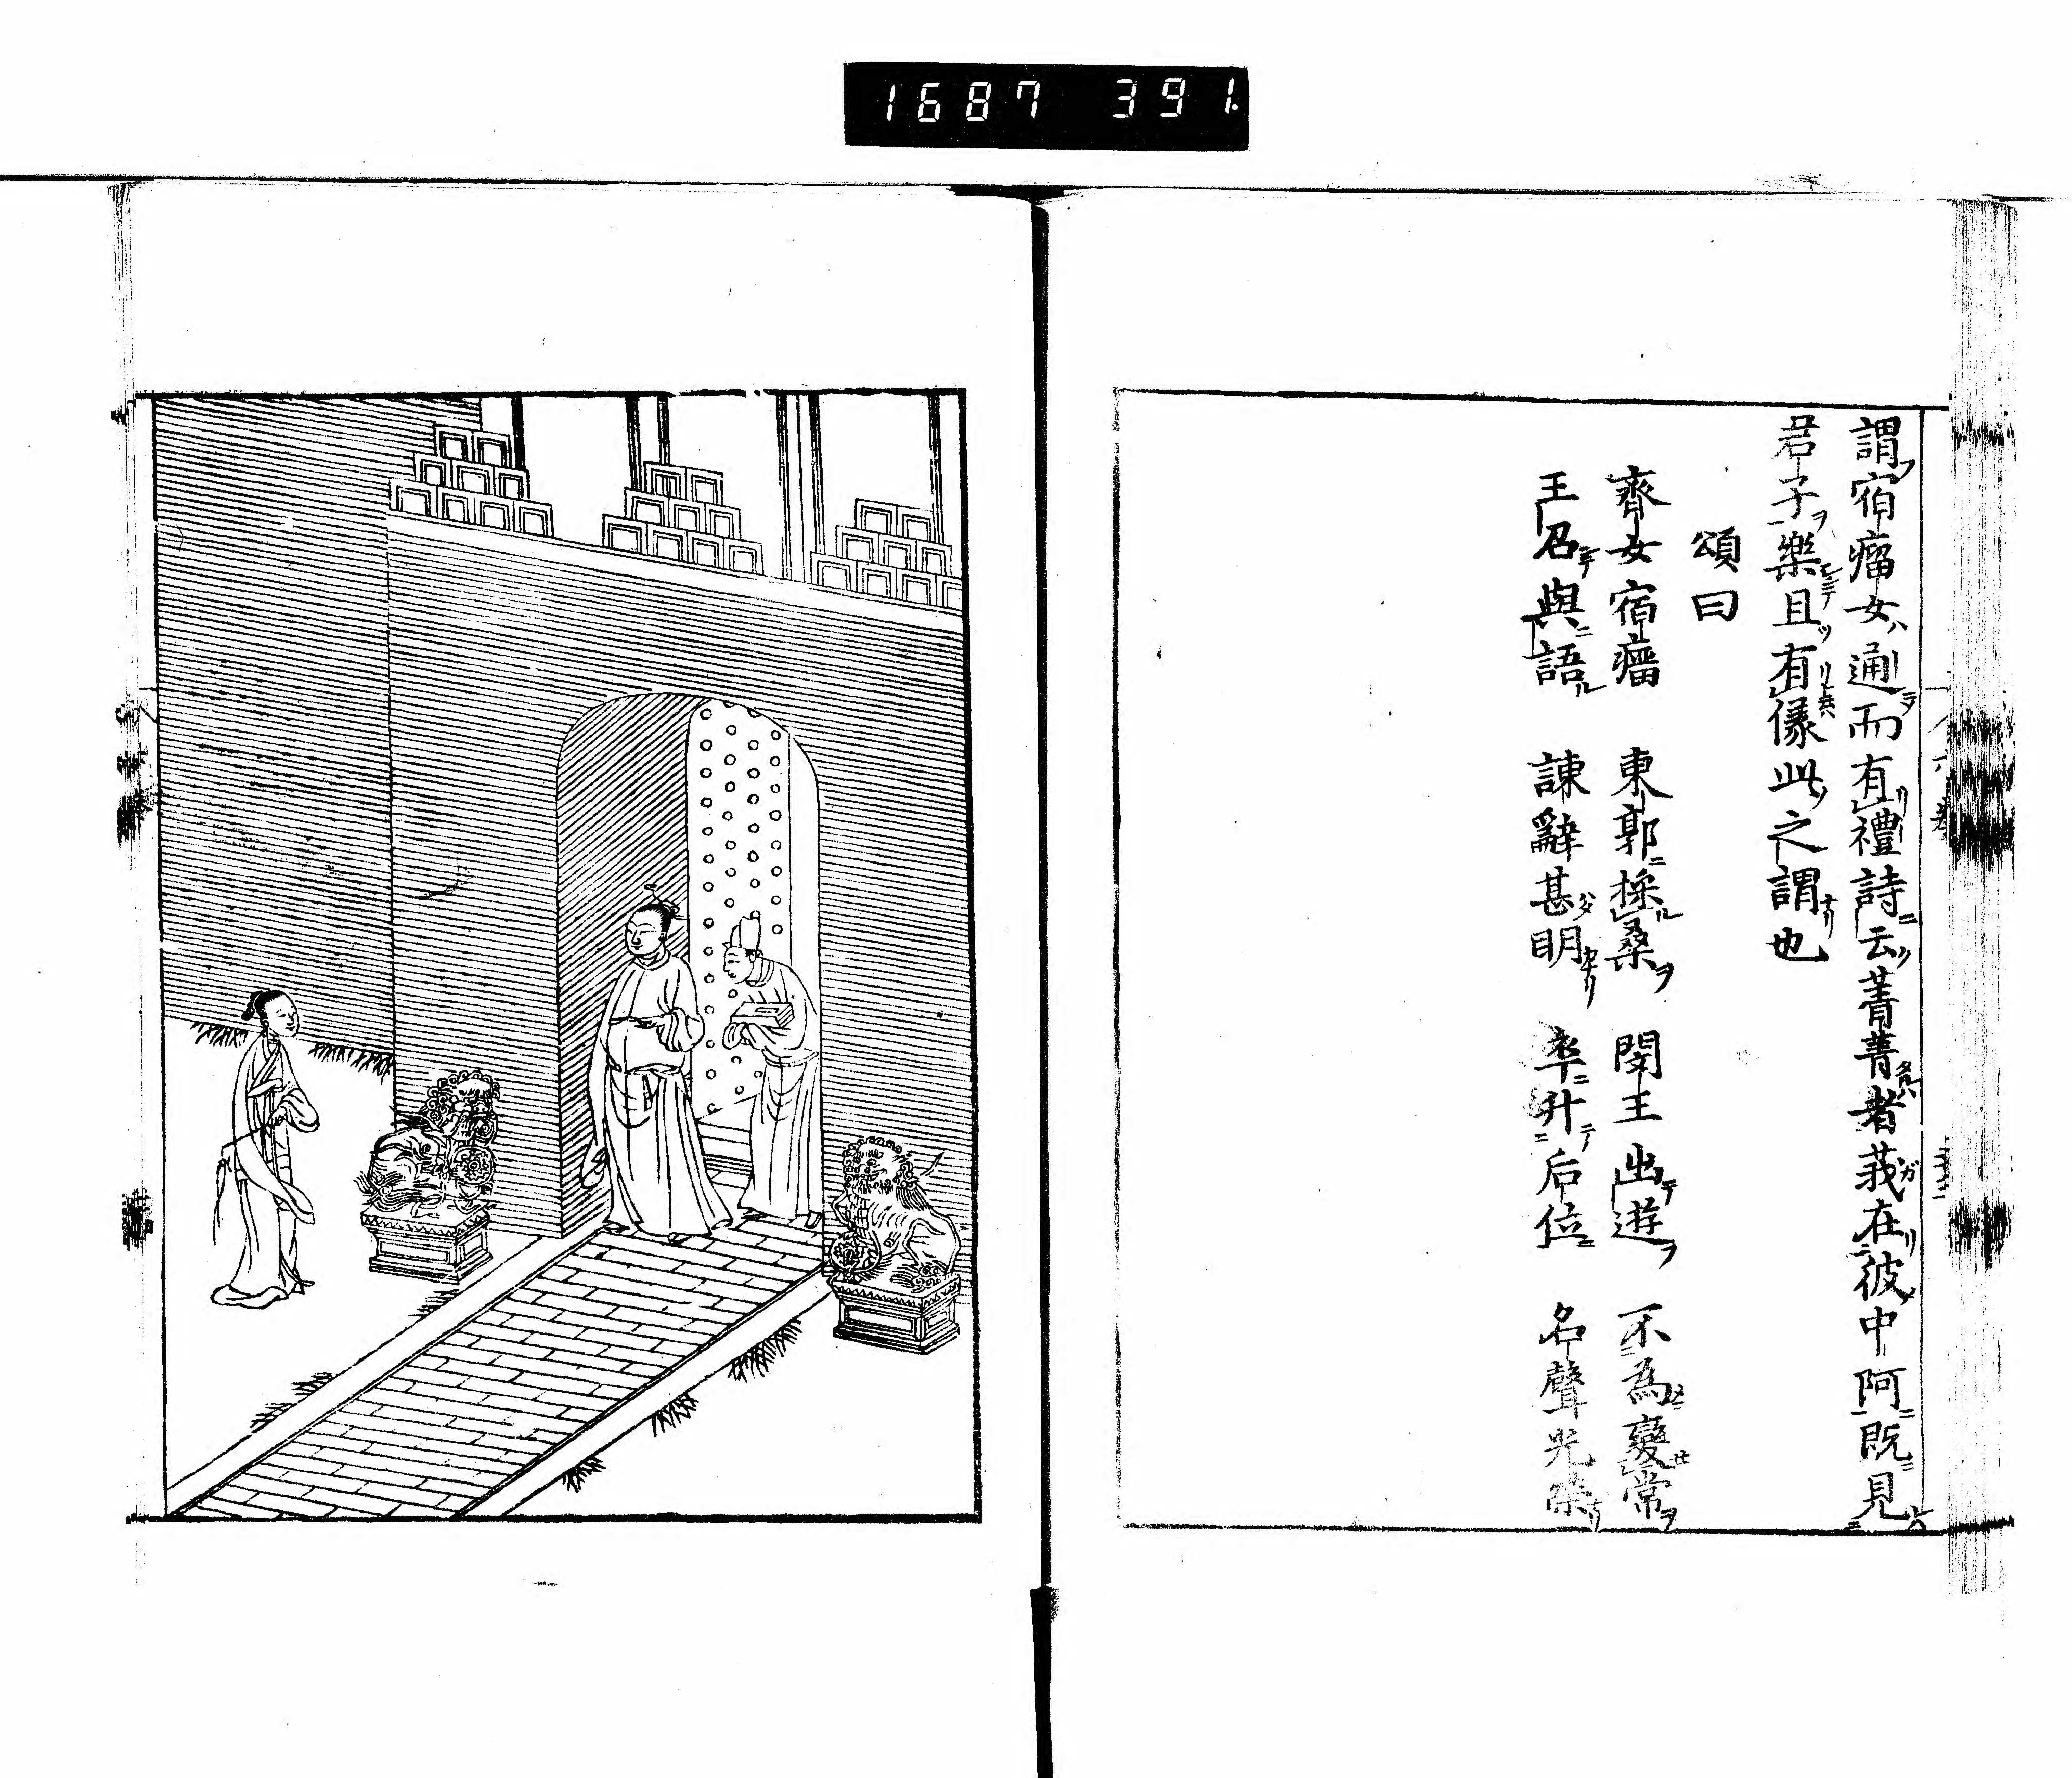 1687 391.
謂宿瘤女通而有禮詩云菁菁者莪在彼中阿既見
君子樂且有儀此之謂也
頌曰
齊女宿瘤 東郭採桑 閔王出遊 不為變常
王召與語 諫辭甚明 卒升后位 名聲光榮